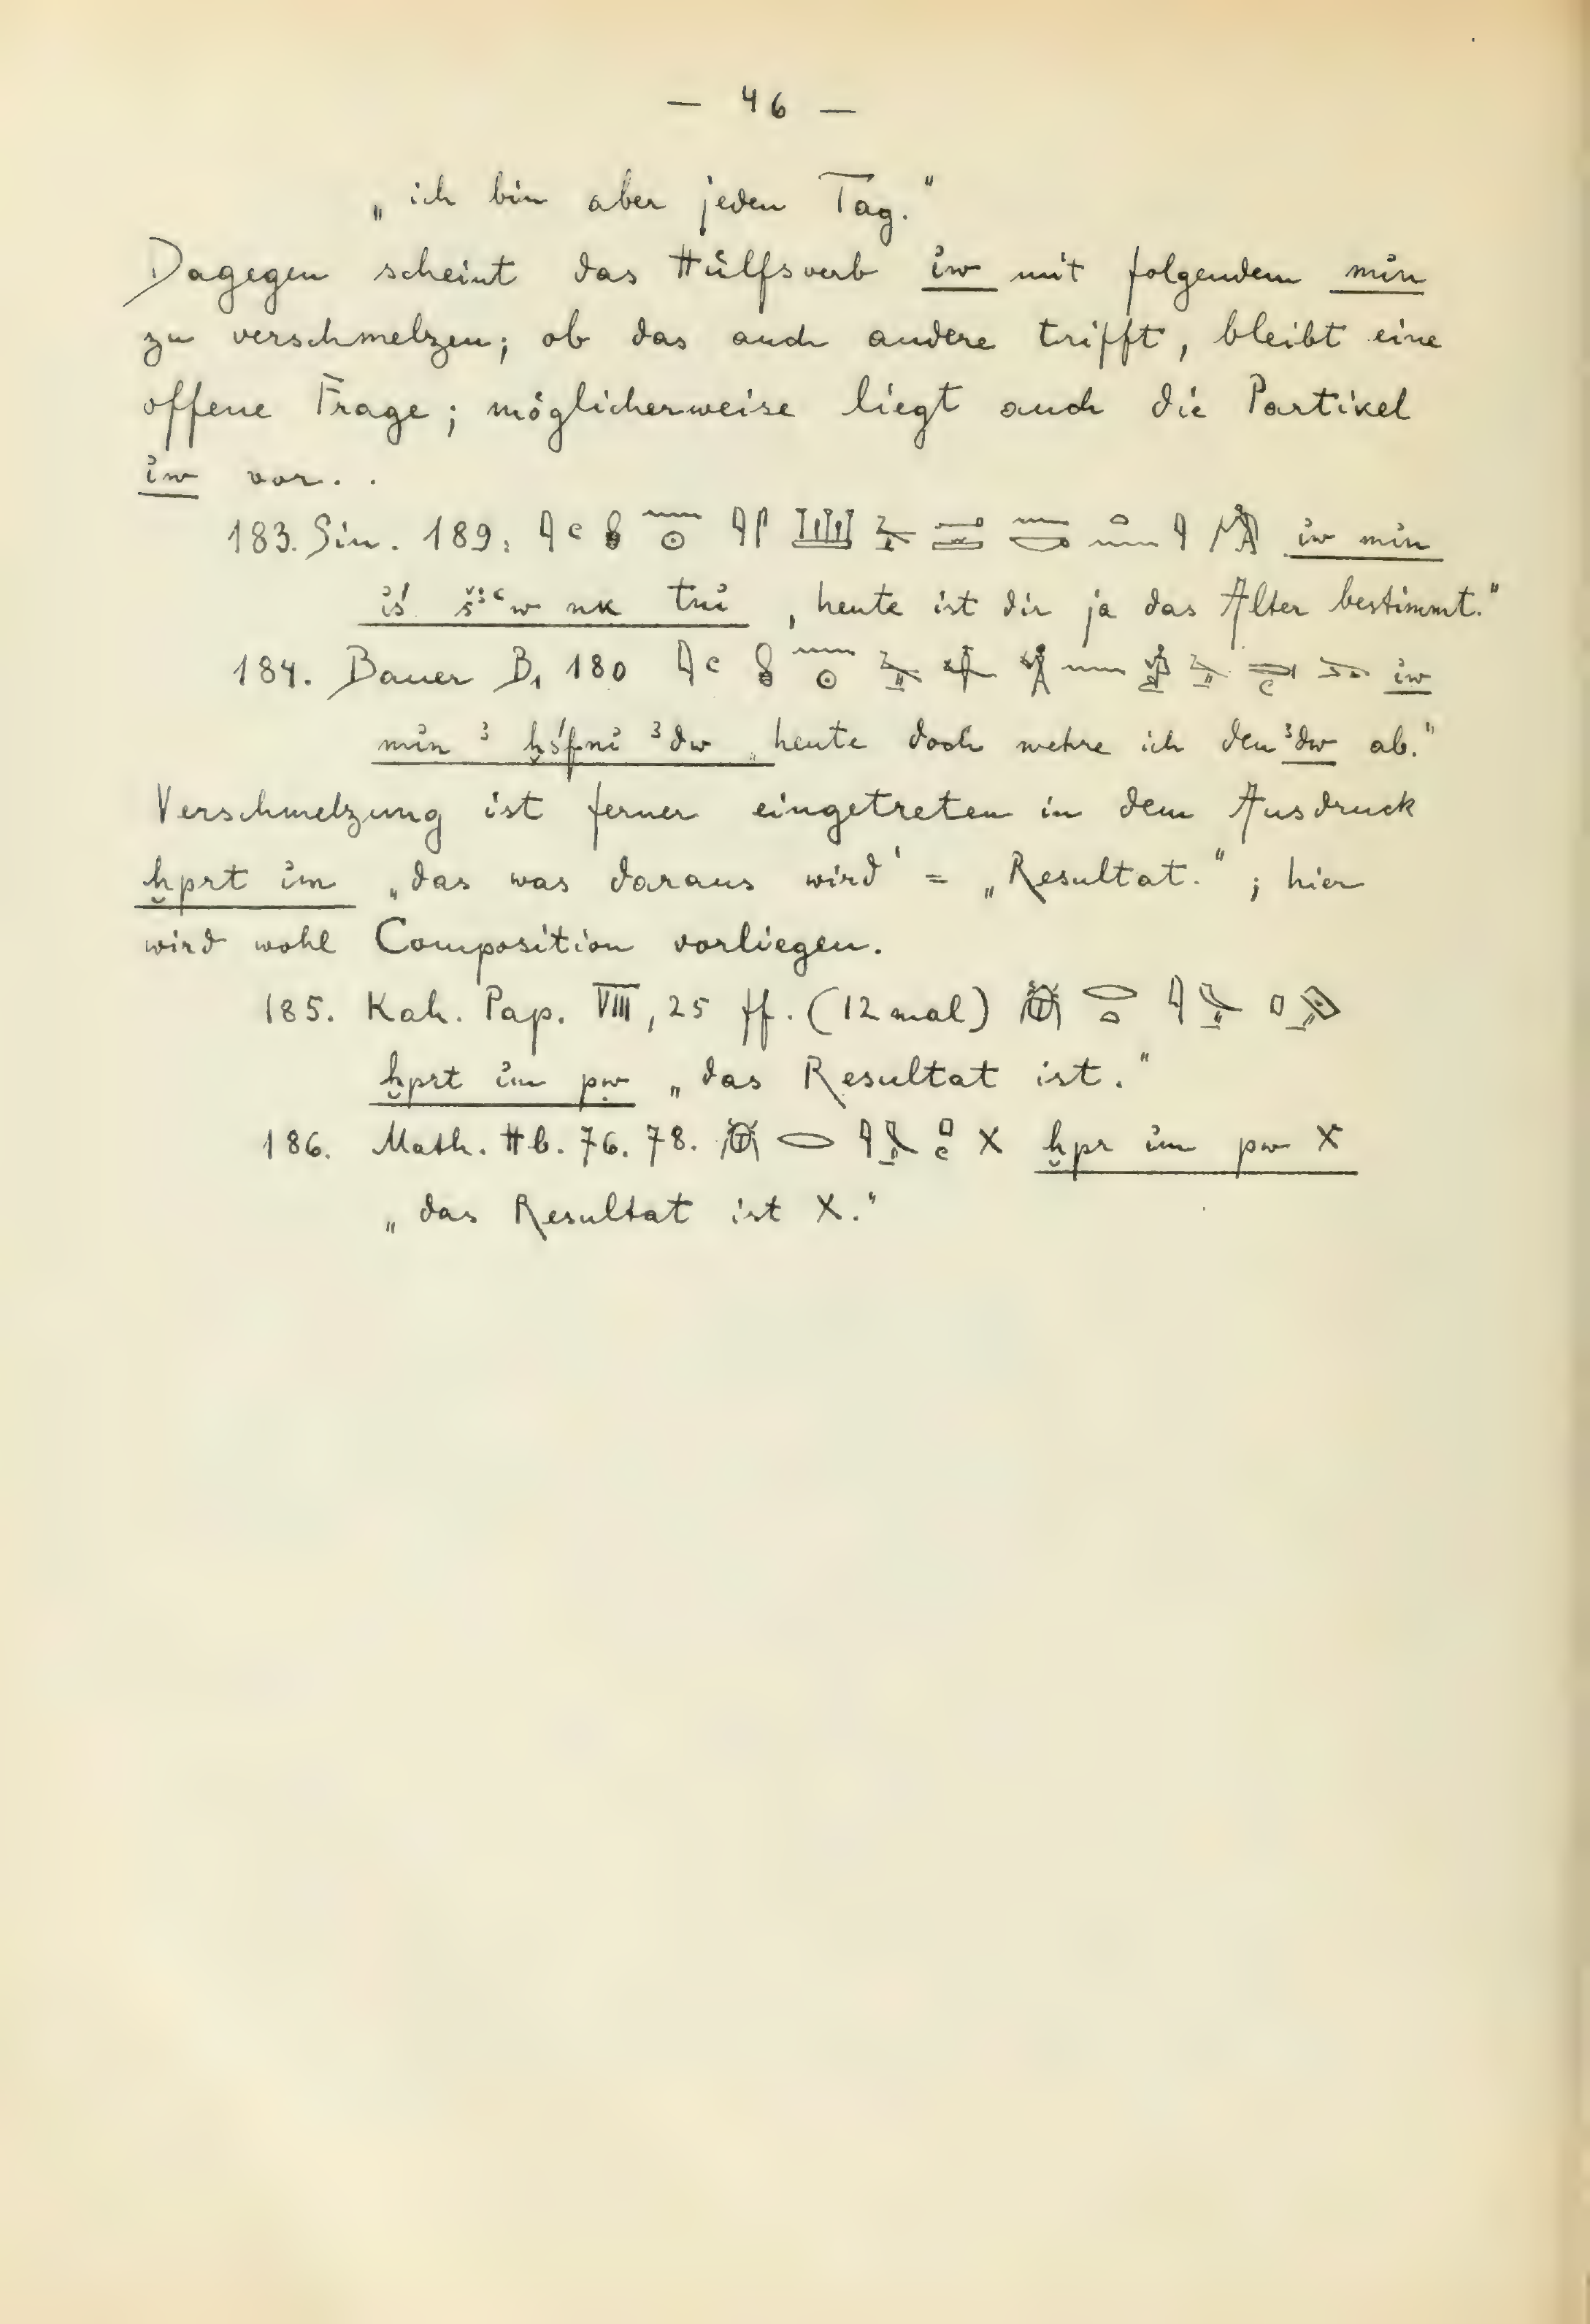 — 46 —
„ ich bin aber jeden Tag."
Dagegen scheint das Hülfsverb ỉw mit folgendem mỉn
zu verschmelzen; ob das auch andere trifft, bleibt eine
offene Frage; möglicherweise liegt auch die Partikel
ỉw vor. .
183. Sin. 189: ỉw mỉn
ỉś nk tnỉ „heute ist dir ja das Alter bestimmt."
184. Bauer B₁ 180 ỉw
mỉn ꜣ ḫśfnỉ ꜣdw „heute doch wehre ich den ꜣdw ab."
Verschmelzung ist ferner eingetreten in dem Ausdruck
ḫprt ỉm „das was daraus wird' = „Resultat." ; hier
wird wohl Composition vorliegen.
185. Kah. Pap. VIII, 25 ff. (12 mal)
ḫprt ỉm pw „das Resultat ist."
186. Math. Hb. 76. 78. X ḫpr ỉm pw X
„das Resultat ist X."